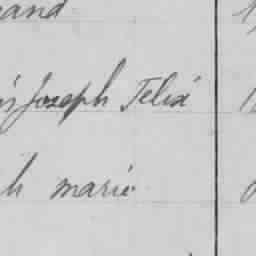 and
Joseph Felix
h marie